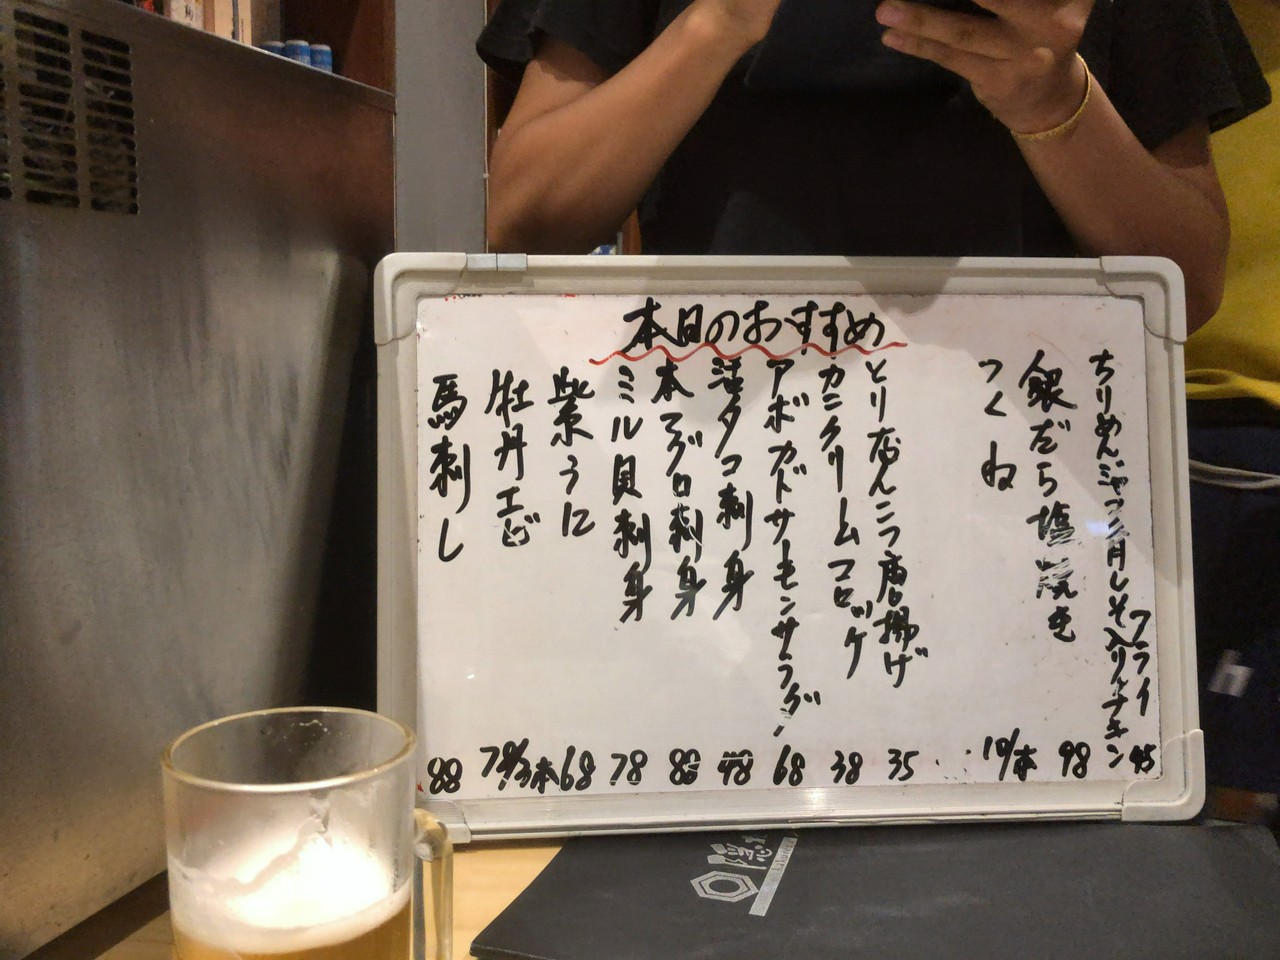 本日のおすすめ
フライ
ちりめんじゃこ 青しそ入りチキン 45
銀だら塩焼き 98
つくね 10/本
とりなんこつ唐揚げ 35
カニクリームコロッケ 38
アボカドサーモンサラダ 68
活タコ刺身 48
本マグロ刺身 88
ミル貝刺身 78
紫うに 68
牡丹エビ 78/3本
馬刺し 88
隠